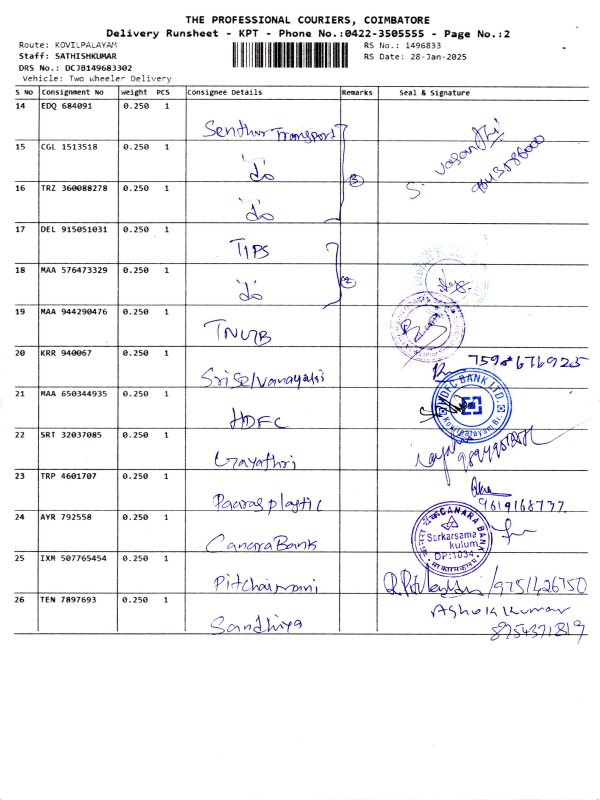 THE PROFESSIONAL COURIERS, COIMBATORE
Delivery Runsheet - KPT - Phone No.:0422-3505555 - Page No.:2
Route: KOVILPALAYAM RS No.: 1496833
Staff: SATHISHKUMAR RS Date: 28-Jan-2025
DRS No.: DCJB149683302
Vehicle: Two Wheeler Delivery
S No Consignment No Weight PCS Consignee Details Remarks Seal & Signature
14 EDQ 684091 0.250 1
Senthur Transport
15 CGL 1513518 0.250 1
do 3 S. Vasanthi
16 TRZ 360088278 0.250 1
do
17 DEL 915051031 0.250 1
TIPS
18 MAA 576473329 0.250 1
do 2
19 MAA 944290476 0.250 1
TNUB
20 KRR 940067 0.250 1 7598676925
Sriselvanayaki
21 MAA 650344935 0.250 1 HDFC BANK LTD.
HDFC Kovilpalayam Br.
22 SRT 32037085 0.250 1
Gayathri
23 TRP 4601707 0.250 1
Paaras plastic 9619168737.
24 AYR 792558 0.250 1 CANARA BANK
Canara Bank Sarkarsama kulum DP:1034
25 IXM 507765454 0.250 1
Pitchaimani 9751426750
26 TEN 7897693 0.250 1 Ashokkumar
Sandhiya 8754371819